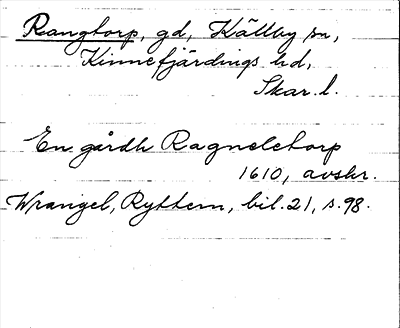 Rangtorp, gd, Källby sn,
Kinnefjärdings hd,
Skar. l.
En gårdh Ragneletorp
1610, avskr.
Wrangel, Ryttern, bil. 21, s. 98.